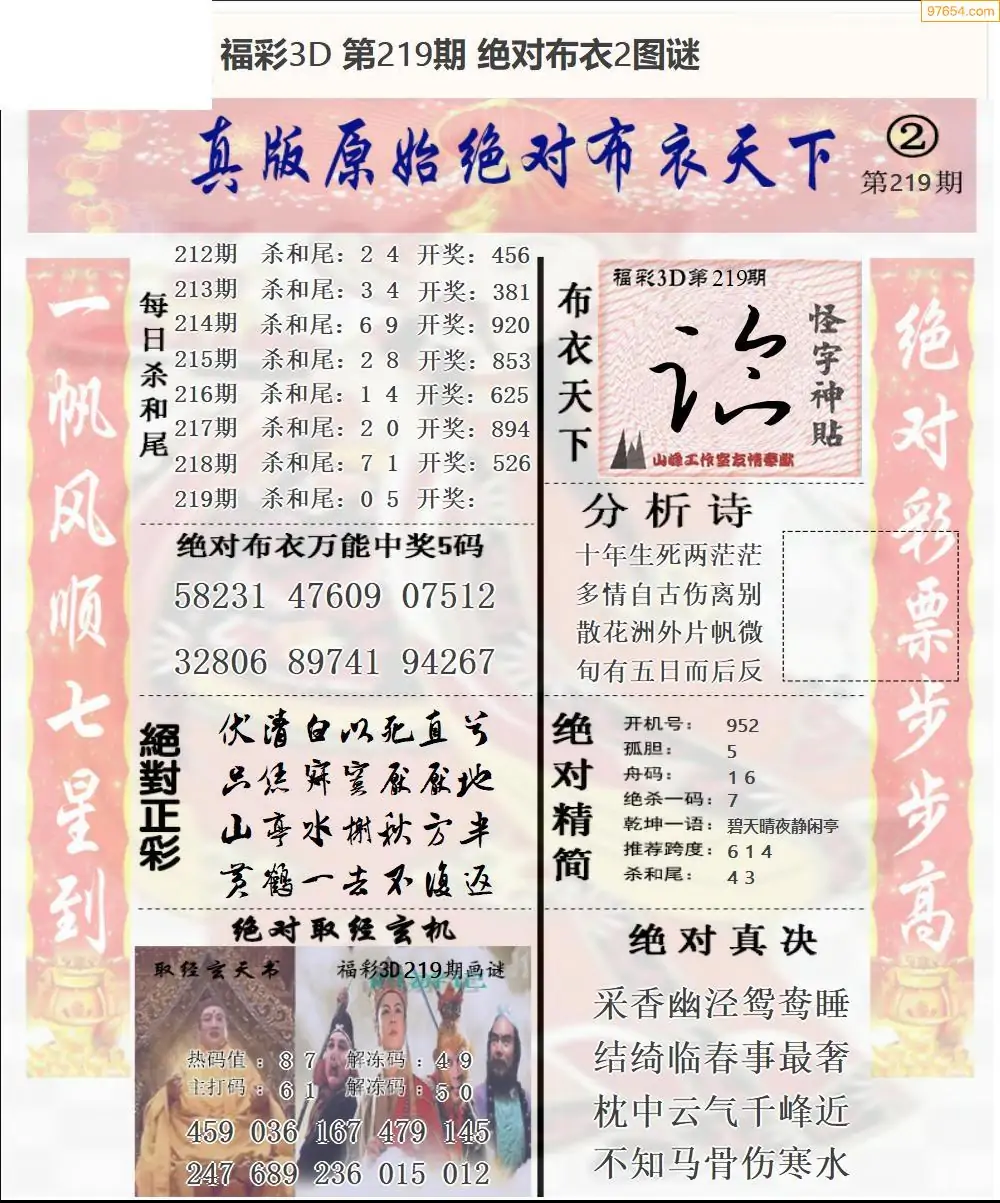 97654.com
福彩3D 第219期 绝对布衣2图谜
真版原始绝对布衣天下
②
第219期
一帆风顺七星到
每日杀和尾
212期 杀和尾：2 4 开奖：456
213期 杀和尾：3 4 开奖：381
214期 杀和尾：6 9 开奖：920
215期 杀和尾：2 8 开奖：853
216期 杀和尾：1 4 开奖：625
217期 杀和尾：2 0 开奖：894
218期 杀和尾：7 1 开奖：526
219期 杀和尾：0 5 开奖：
绝对布衣万能中奖5码
58231 47609 07512
32806 89741 94267
絕對正彩
伏清白以死直兮
山亭水榭秋方半
黄鹤一去不復返
绝对取经玄机
取经玄天书
福彩3D219期画谜
热码值：8 7 解冻码：4 9
主打码：6 1 解冻码：5 0
459 036 167 479 145
247 689 236 015 012
布衣天下
福彩3D第219期
怪字神貼
山峰工作室友情奉献
分析诗
十年生死两茫茫
多情自古伤离别
散花洲外片帆微
旬有五日而后反
绝对精简
开机号： 952
孤胆： 5
舟码： 1 6
绝杀一码：7
乾坤一语：碧天晴夜静闲亭
推荐跨度：6 1 4
杀和尾： 4 3
绝对真决
采香幽泾鸳鸯睡
结绮临春事最奢
枕中云气千峰近
不知马骨伤寒水
绝对彩票步步高